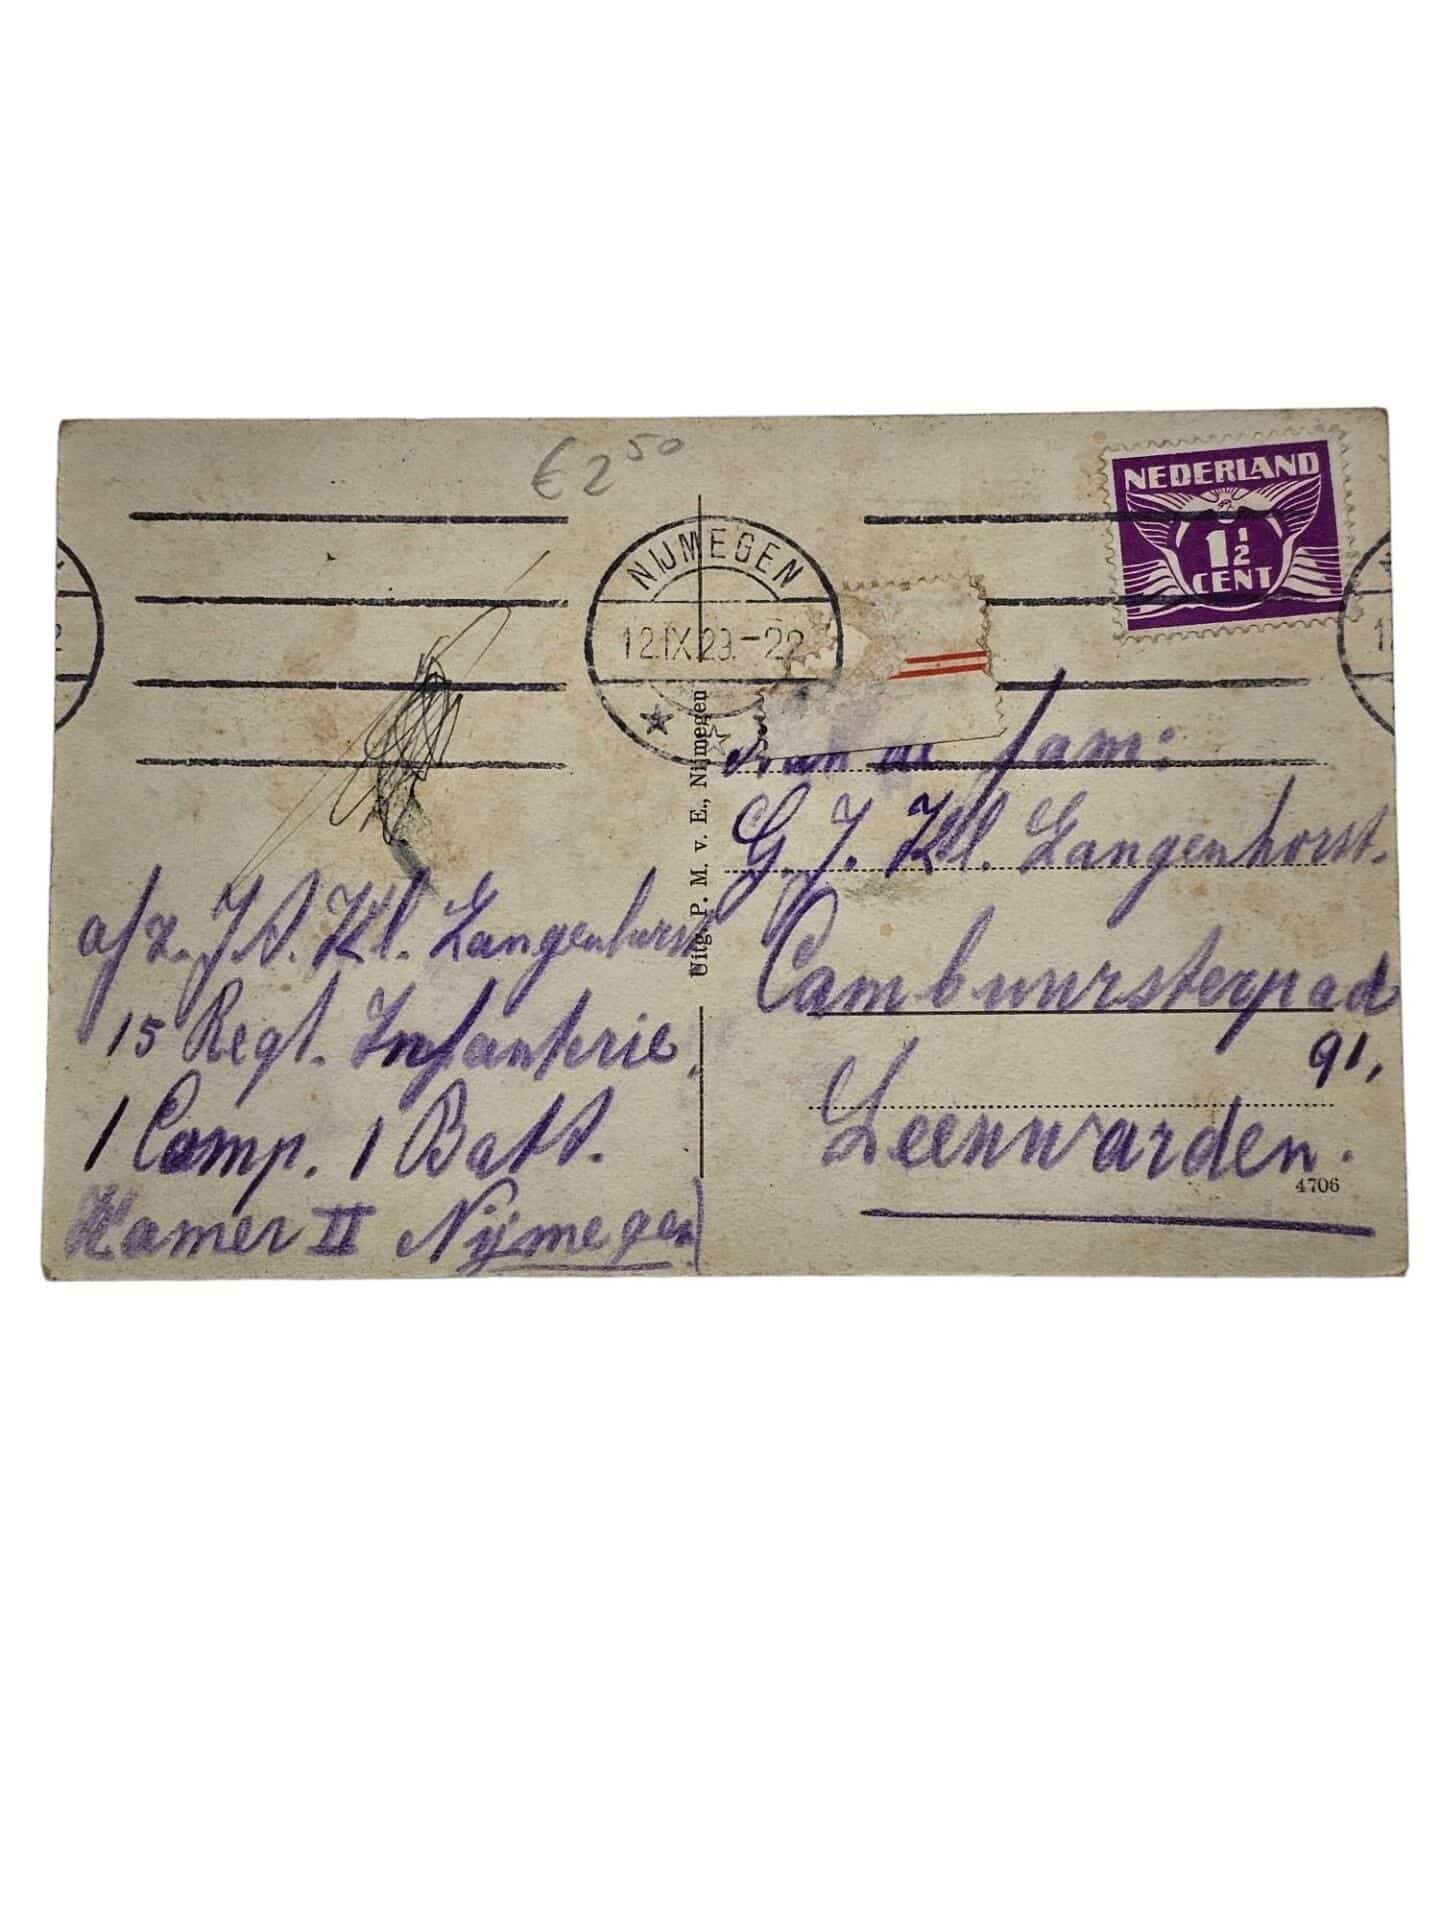 € 2 50
NEDERLAND
1 1/2
CENT
NIJMEGEN
12.IX.29.-22
Uitg. P. M. v. E., Nijmegen
Aan de fam:
G. J. Kl. Langenhorst.
Cambuursterpad
91,
Leeuwarden.
4706
a/z. J. A. Kl. Langenhorst
15 Regt. Infanterie,
1 Comp. 1 Batt.
Kamer II Nijmegen